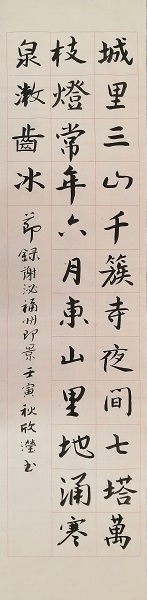 城里三山千簇寺夜間七塔萬
枝燈常年六月東山里地涌寒
泉漱齒冰
節録謝泌福州即景壬寅秋欣瀅书